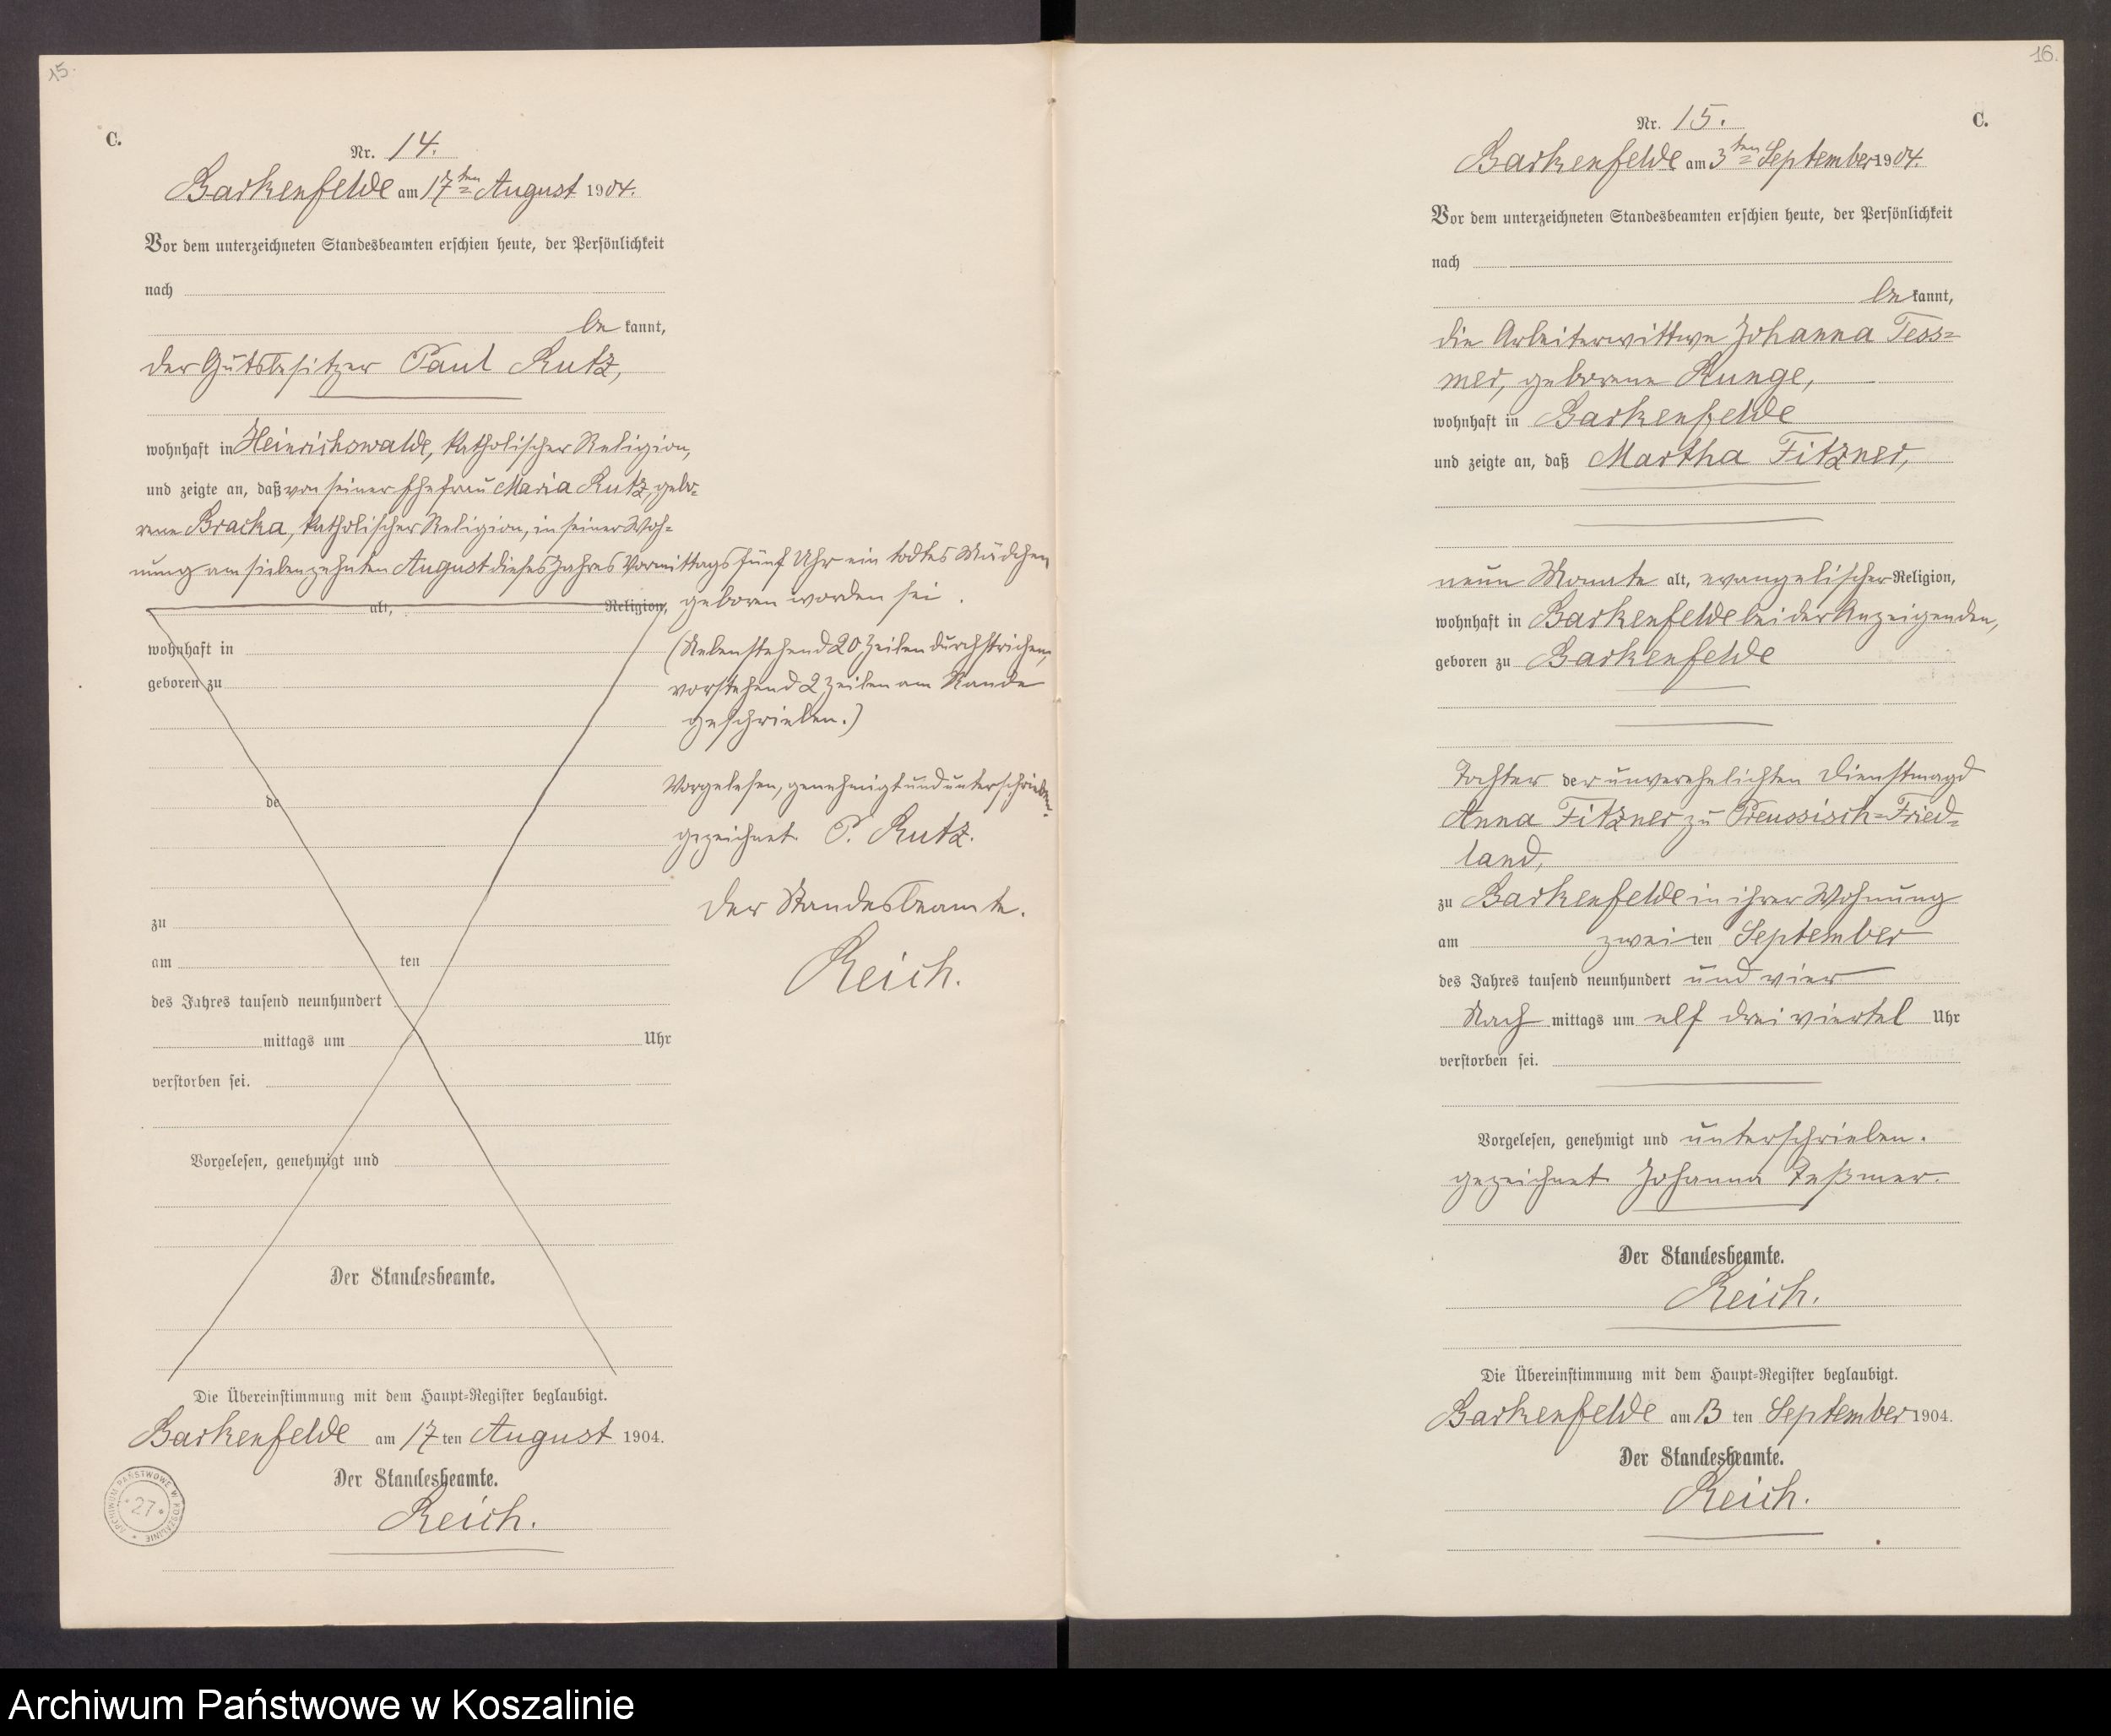 15.
C.
Nr. 14.
Barkenfelde am 17ten August 1904.
Vor dem unterzeichneten Standesbeamten erschien heute, der Persönlichkeit
nach
be kannt,
der Gutsbesitzer Paul Rutz,
wohnhaft in Heinrichswalde, katholischer Religion,
und zeigte an, daß von seiner Ehefrau Maria Rutz, gebo-
rene Bracka, katholischer Religion, in seiner Woh-
nung am siebenzehnten August dieses Jahres Vormittags fünf Uhr ein todtes Mädchen
alt, Religion, geboren worden sei.
(Nebenstehend 20 Zeilen durchstrichen,
vorstehend 2 Zeilen am Rande
geschrieben.)
Vorgelesen, genehmigt und unterschrieben.
gezeichnet P. Rutz.
Der Standesbeamte.
Reich.
wohnhaft in
geboren zu
de
zu
am ten
des Jahres tausend neunhundert
mittags um Uhr
verstorben sei.
Vorgelesen, genehmigt und
Der Standesbeamte.
Die Übereinstimmung mit dem Haupt-Register beglaubigt.
Barkenfelde am 17 ten August 1904.
Der Standesbeamte.
Reich.
ARCHIWUM PAŃSTWOWE W KOSZALINIE
* 27 *
16.
C.
Nr. 15.
Barkenfelde am 3ten September 1904.
Vor dem unterzeichneten Standesbeamten erschien heute, der Persönlichkeit
nach
be kannt,
die Arbeiterwittwe Johanna Tess-
mer, geborene Runge,
wohnhaft in Barkenfelde
und zeigte an, daß Martha Fitzner,
neun Monate alt, evangelischer Religion,
wohnhaft in Barkenfelde bei der Anzeigenden,
geboren zu Barkenfelde
Tochter der unverehelichten Dienstmagd
Anna Fitzner zu Preussisch-Fried-
land,
zu Barkenfelde in ihrer Wohnung
am zwei ten September
des Jahres tausend neunhundert und vier
Nach mittags um elf drei viertel Uhr
verstorben sei.
Vorgelesen, genehmigt und unterschrieben.
gezeichnet Johanna Teßmer.
Der Standesbeamte.
Reich.
Die Übereinstimmung mit dem Haupt-Register beglaubigt.
Barkenfelde am 13 ten September 1904.
Der Standesbeamte.
Reich.
Archiwum Państwowe w Koszalinie